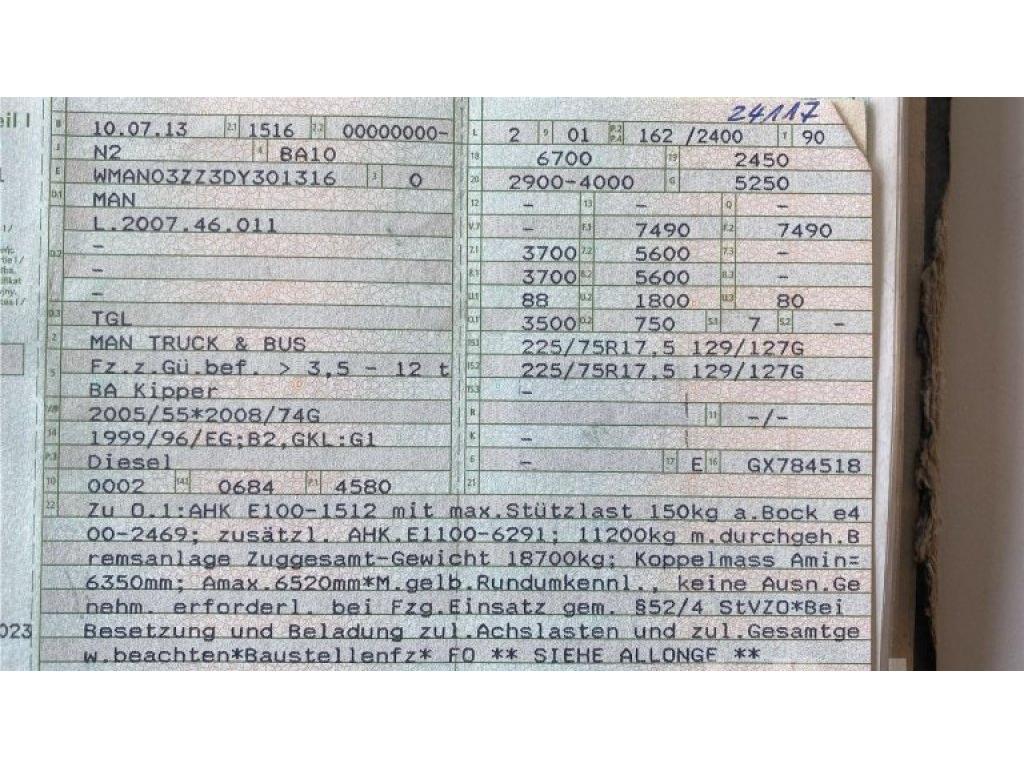 24117
eil I
B 10.07.13 2.1 1516 2.2 00000000-
L 2 9 01 P.2 P.4 162 /2400 T 90
J N2 4 BA10
18 6700 19 2450
E WMAN03ZZ3DY301316 3 0
20 2900-4000 G 5250
D.1 MAN
12 – 13 – Q –
L.2007.46.011
V.7 – F.1 7490 F.2 7490
D.2 –
7.1 3700 7.2 5600 7.3 –
–
8.1 3700 8.2 5600 8.3 –
–
U.1 88 U.2 1800 U.3 80
D.3 TGL
O.1 3500 O.2 750 S.1 7 S.2 –
2 MAN TRUCK & BUS
15.1 225/75R17,5 129/127G
5 Fz.z.Gü.bef. > 3,5 - 12 t
15.2 225/75R17,5 129/127G
BA Kipper
15.3 –
V.9 2005/55*2008/74G
R 11 -/-
14 1999/96/EG;B2,GKL:G1
K –
P.3 Diesel
6 – 17 E 16 GX784518
10 0002 14.1 0684 P.1 4580
21
22 Zu O.1:AHK E100-1512 mit max.Stützlast 150kg a.Bock e4
00-2469; zusätzl. AHK.E1100-6291; 11200kg m.durchgeh.B
remsanlage Zuggesamt-Gewicht 18700kg; Koppelmass Amin=
6350mm; Amax.6520mm*M.gelb.Rundumkennl., keine Ausn.Ge
nehm. erforderl. bei Fzg.Einsatz gem. §52/4 StVZO*Bei
023 Besetzung und Beladung zul.Achslasten und zul.Gesamtge
w.beachten*Baustellenfz* FO ** SIEHE ALLONGE **